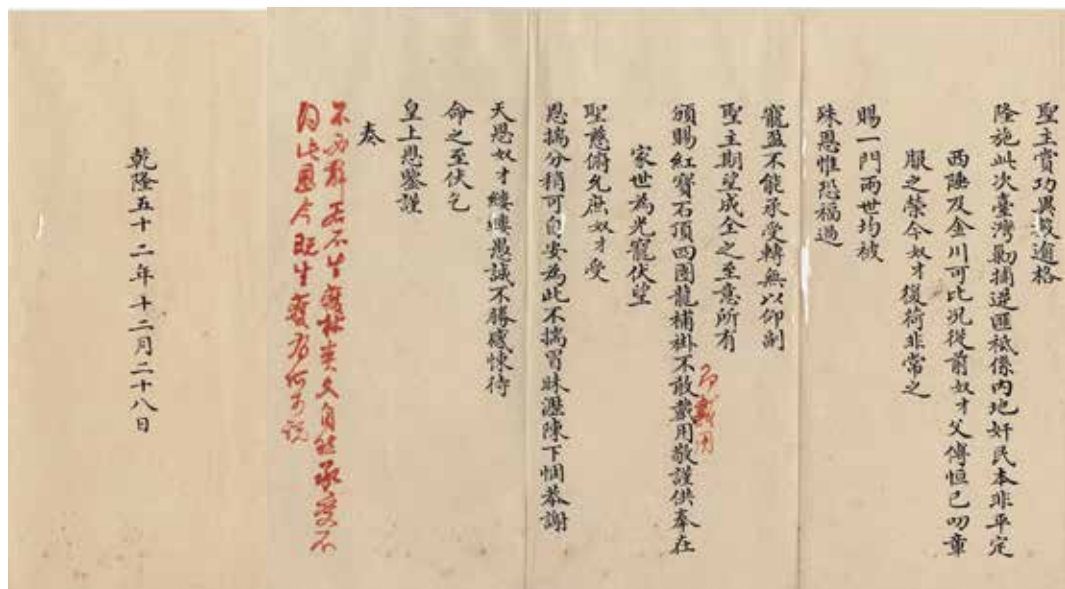 聖主賞功異數逾格
隆施此次臺灣勦捕逆匪祗係內地奸民本非平定
西陲及金川可比況從前奴才父傅恒已叨章
服之榮今奴才復荷非常之
賜一門兩世均被
殊恩惟恐福過
寵盈不能承受轉無以仰副
聖主期望成全之至意所有
即戴用
頒賜紅寶石頂四團龍補褂不敢戴用敬謹供奉在
家世為光寵伏望
聖慈俯允庶奴才受
恩揣分稍可自安為此不揣冒昧瀝陳下悃恭謝
天恩奴才縷縷愚誠不勝感悚待
命之至伏乞
皇上恩鑒謹
奏
不必辭若不生獲林爽文自然承受不
得此恩今既生獲有何可說
乾隆五十二年十二月二十八日